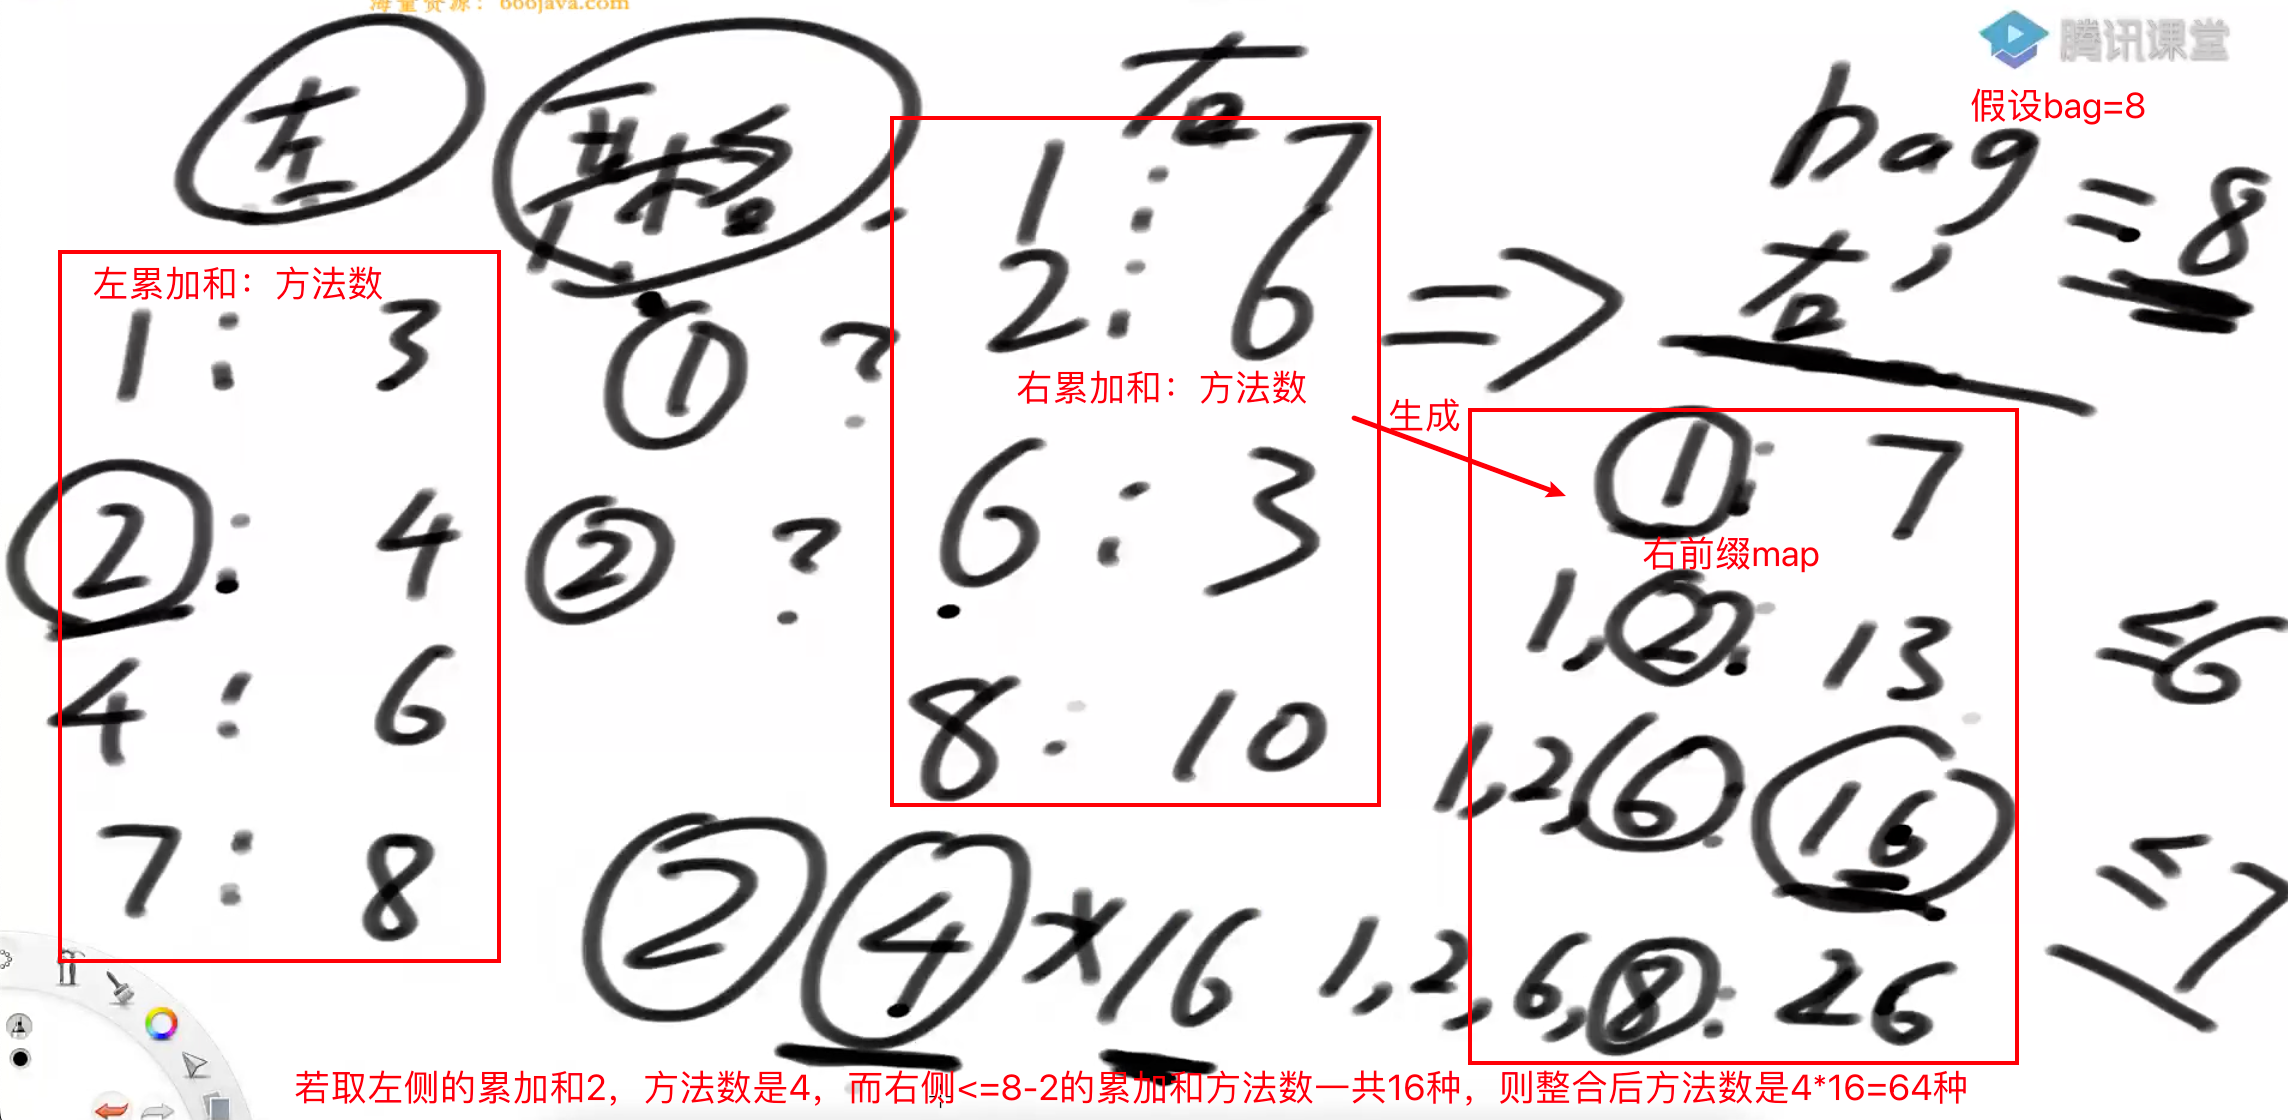 海量资源：666java.com
腾讯课堂
左
右
bag = 8
假设bag=8
右'
左累加和：方法数
1 : 3
2 : 4
4 : 6
7 : 8
① ?
② ?
1 : 7
2 : 6
右累加和：方法数
6 : 3
8 : 10
=>
生成
① : 7
右前缀map
1, ② : 13
≤6
1, 2, ⑥ : 16
≤7
1, 2, 6, ⑧ : 26
② ④ × 16
若取左侧的累加和2，方法数是4，而右侧<=8-2的累加和方法数一共16种，则整合后方法数是4*16=64种